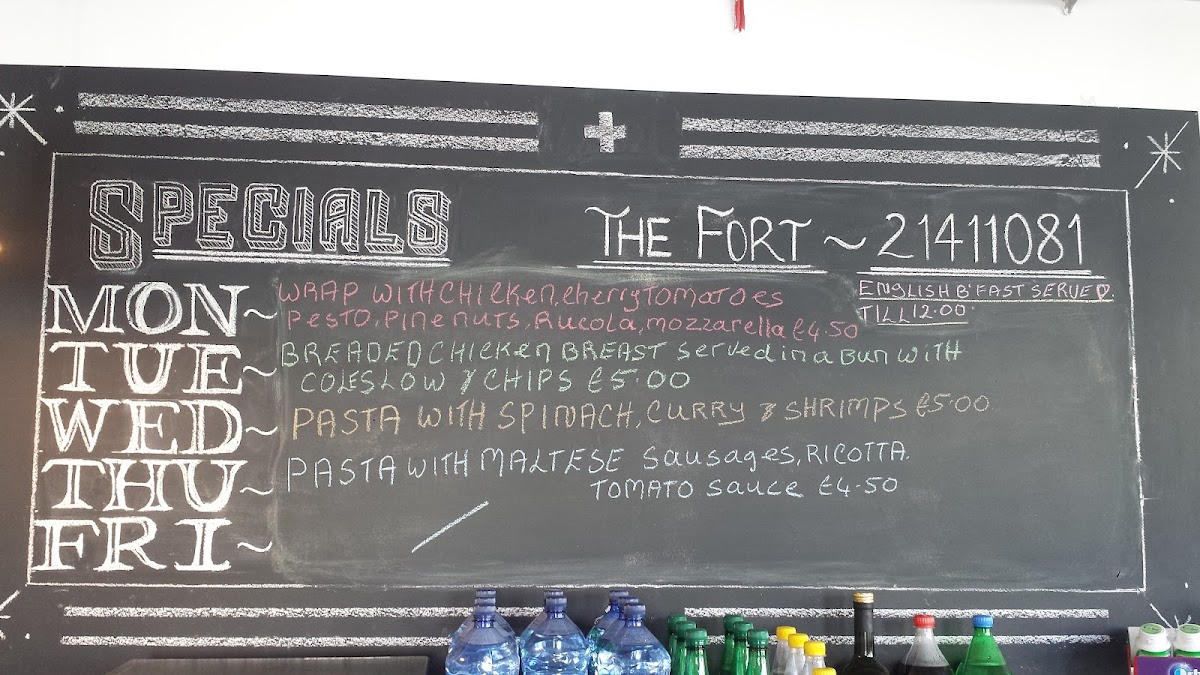 SPECIALS
THE FORT ~ 21411081
ENGLISH B'FAST SERVED
TILL 12.00
MON~ WRAP WITH CHICKEN, CHERRY TOMATOES
PESTO, PINE NUTS, RUCOLA, MOZZARELLA €4.50
TUE~ BREADED CHICKEN BREAST SERVED IN A BUN WITH
COLESLOW & CHIPS €5.00
WED~ PASTA WITH SPINACH, CURRY & SHRIMPS €5.00
THU~ PASTA WITH MALTESE SAUSAGES, RICOTTA.
TOMATO SAUCE €4.50
FRI~